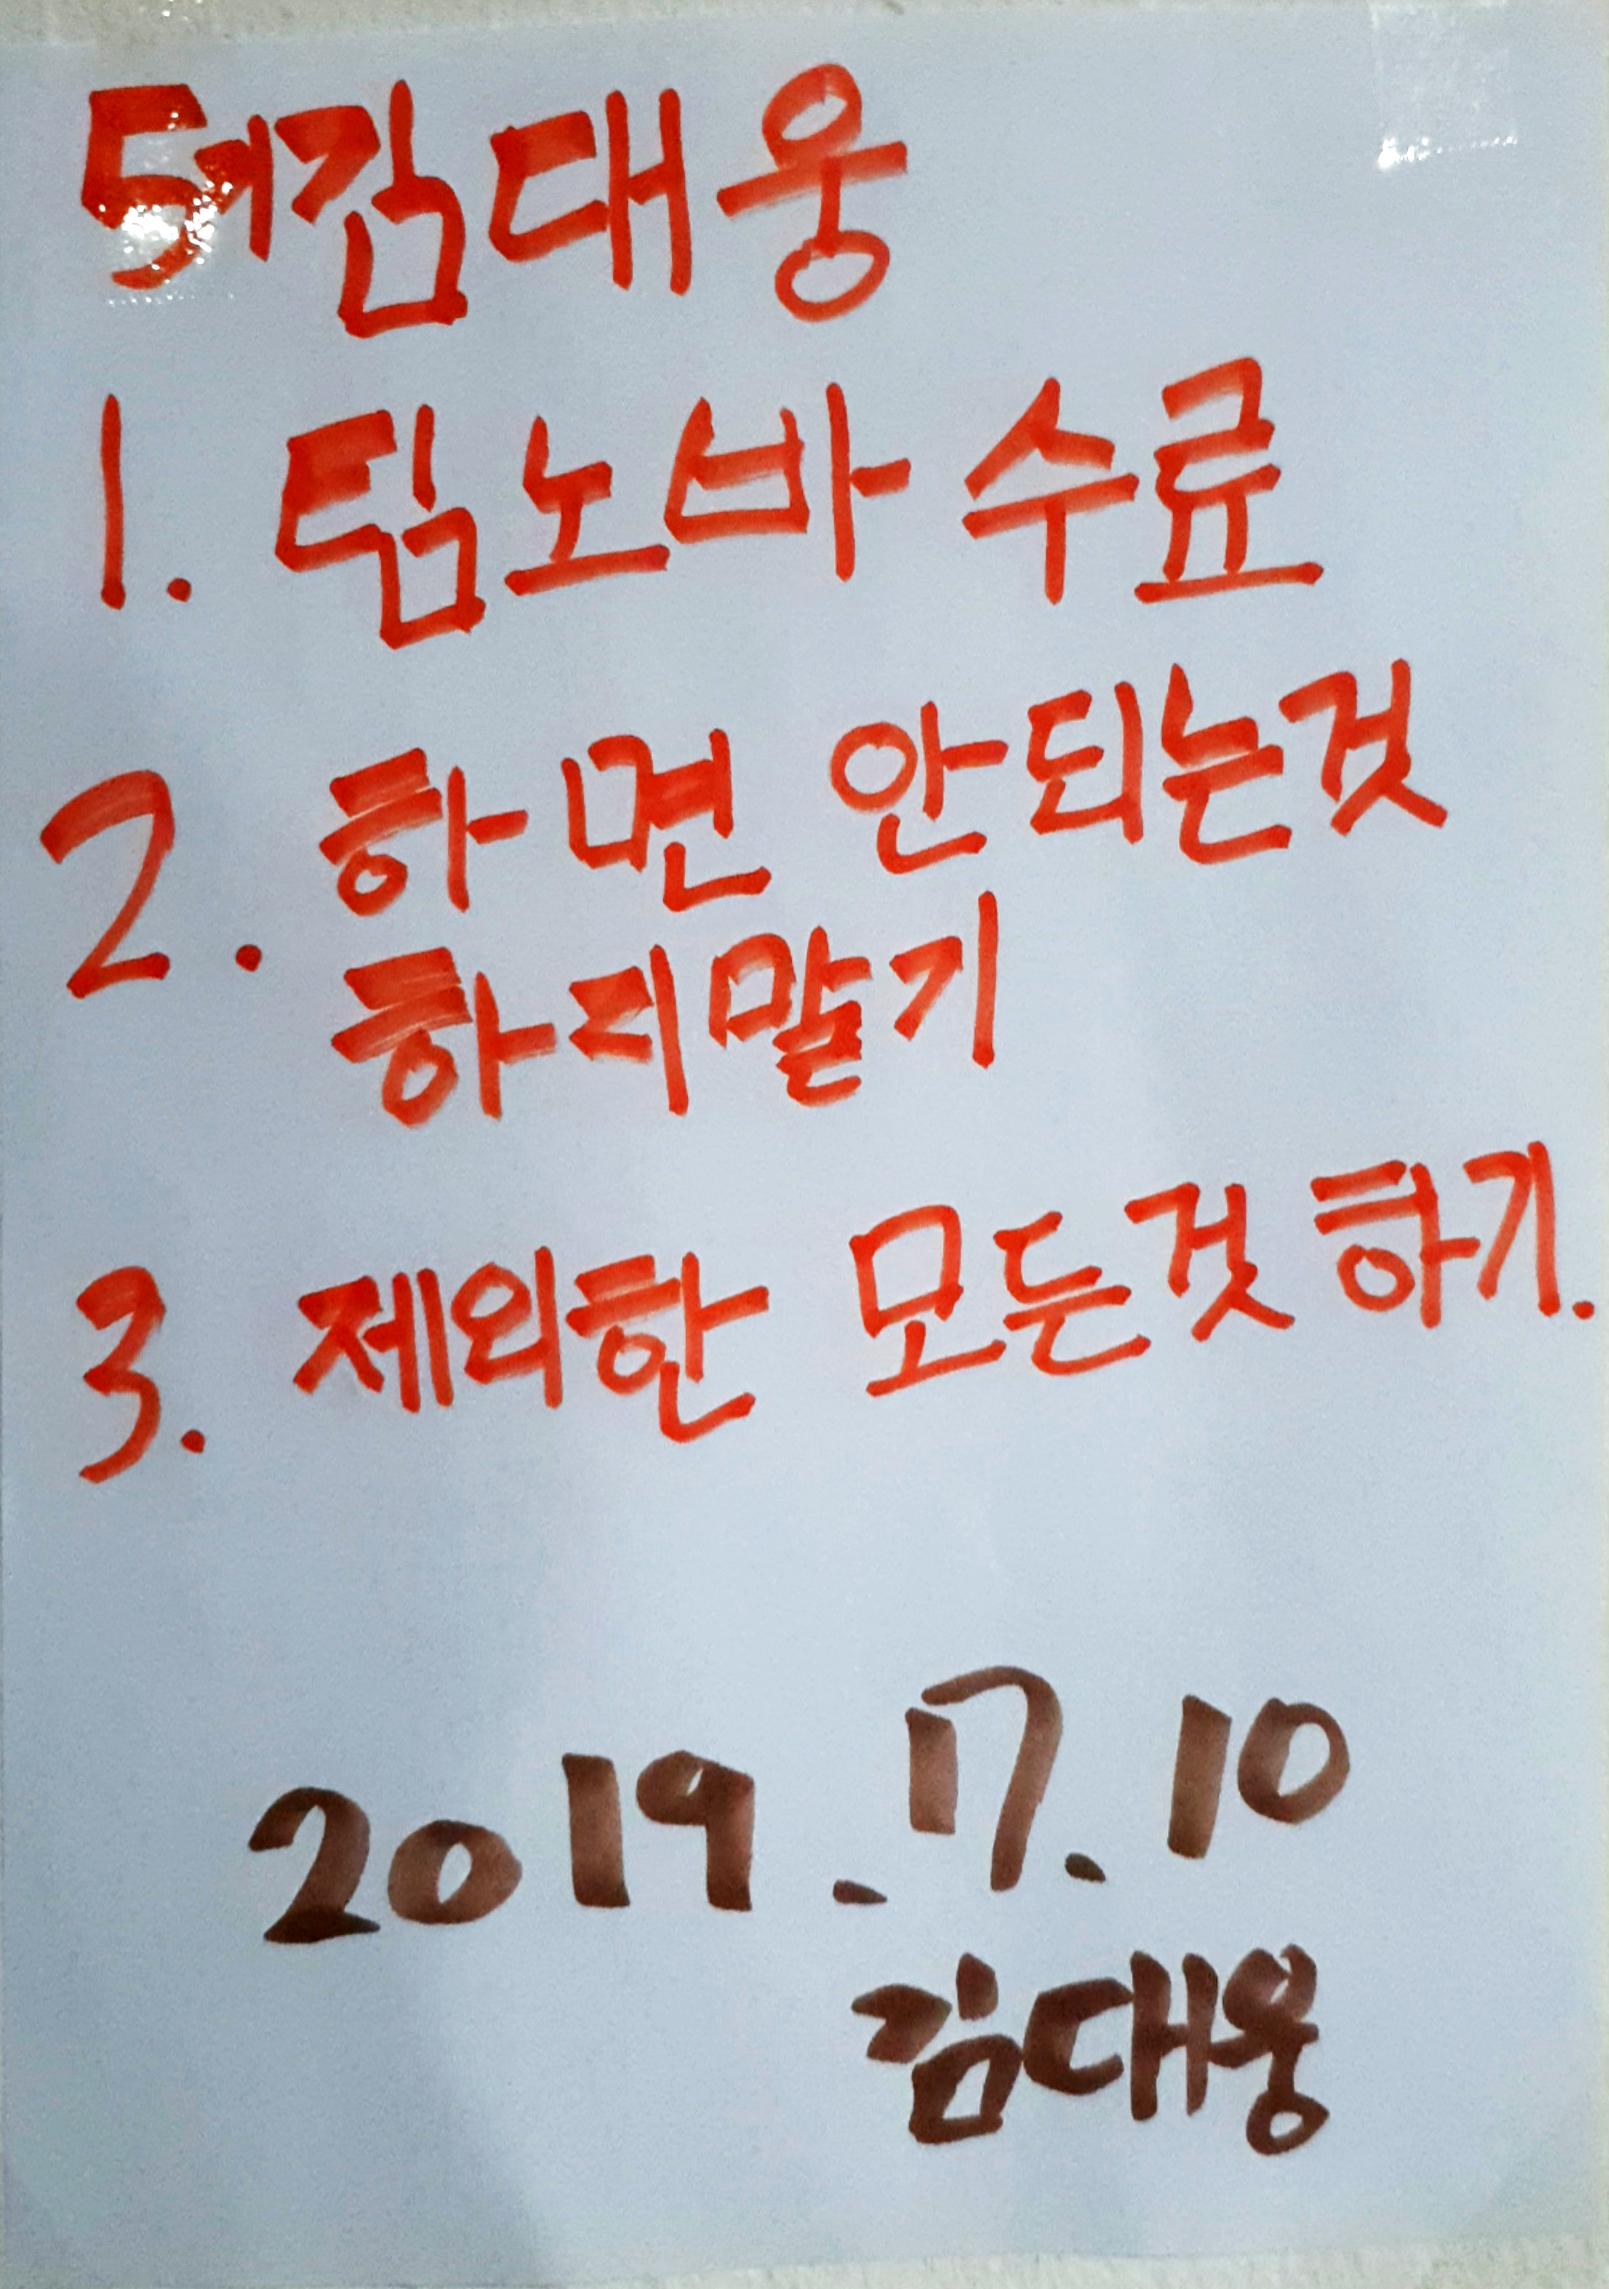 5어김대웅
1. 팀노바 수료
2. 하면 안되는것
하지말기
3. 제외한 모든것 하기.
2019.7.10
김대웅